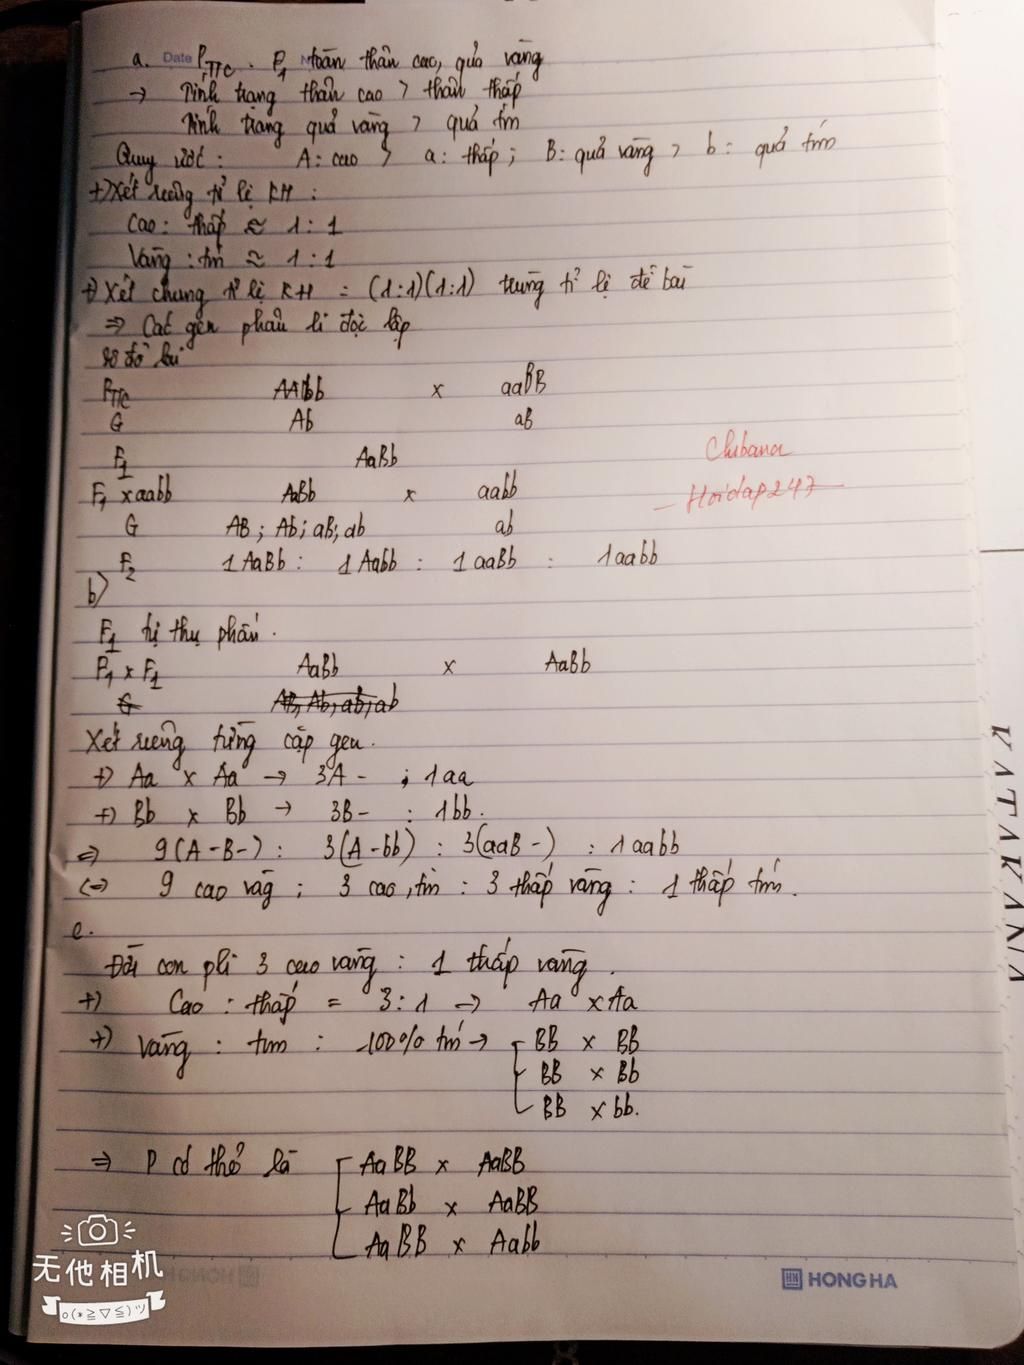 Date
a. P_TTC. F1 toàn thân cao, quả vàng
→ Tính trạng thân cao > thân thấp
Tính trạng quả vàng > quả tím
Quy ước: A: cao > a: thấp; B: quả vàng > b: quả tím
+) Xét riêng tỉ lệ KH:
Cao: thấp ≈ 1:1
Vàng: tím ≈ 1:1
+) Xét chung tỉ lệ KH = (1:1)(1:1) trùng tỉ lệ đề bài
⇒ Các gen phân li độc lập
sơ đồ lai
P_TTC AAbb x aaBB
G Ab aB
F1 AaBb
Chibana
F1 x aabb AaBb x aabb
- Hoidap247
G AB; Ab; aB; ab ab
F2 1AaBb: 1Aabb: 1aaBb: 1aabb
b)
F1 tự thụ phấn.
F1 x F1 AaBb x AaBb
G AB, Ab, ab, ab
Xét riêng từng cặp gen.
+) Aa x Aa → 3A- ; 1aa
+) Bb x Bb → 3B- : 1bb.
⇒ 9(A-B-): 3(A-bb): 3(aaB-): 1aabb
⇔ 9 cao vàg; 3 cao, tím: 3 thấp vàng: 1 thấp tím.
c.
Đời con pli 3 cao vàng: 1 thấp vàng.
+) Cao: thấp = 3:1 → Aa x Aa
+) Vàng: tím: 100% tím → BB x BB
BB x Bb
BB x bb.
⇒ P có thể là AaBB x AaBB
AaBb x AaBB
AaBB x Aabb
无他相机
o(*≧▽≦)ツ
HN HONG HA
KATAKANA